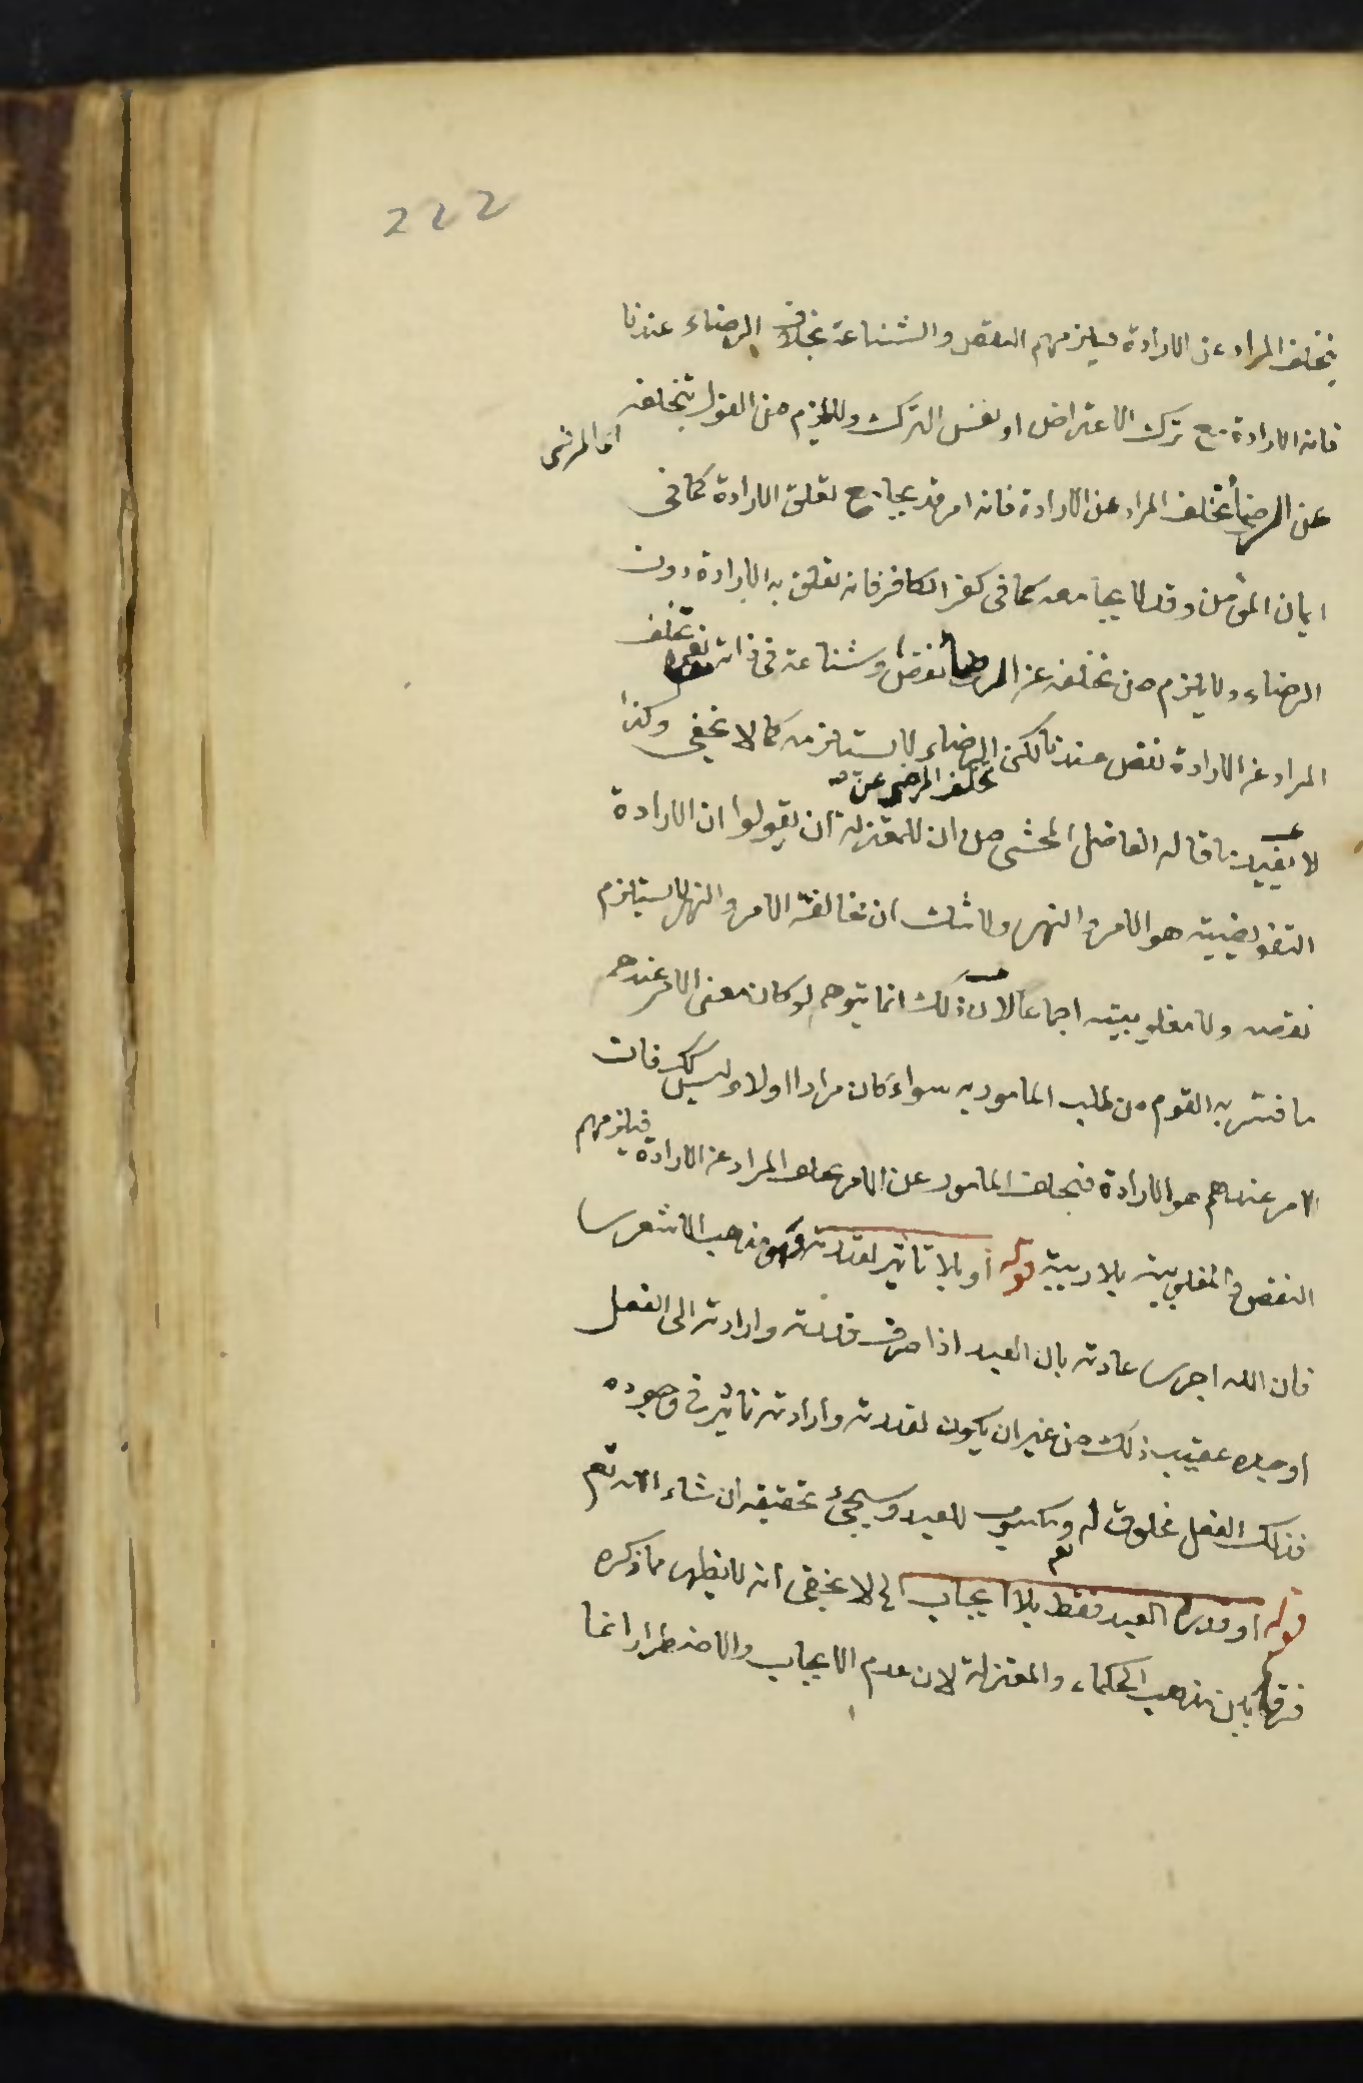 222
بتخلف المراد عن الارادة فيلزمهم النقص والشناعة بخلاف الرضاء عندنا
فانه الارادة مع ترك الاعتراض او نفس الترك ولا يلزم من القول بتخلف
اى المرضى
عن الرضاء تخلف المراد عن الارادة فانه امر قد يجامع تعلق الارادة كما فى
ايمان المؤمن وقد لا يجامعه كما فى كفر الكافر فانه تعلق به الارادة دون
الرضاء ولا يلزم من تخلفه عن الرضا نقص وشناعة فى ذاته نعم تخلف
المراد عن الارادة نقص عندنا لكن الرضاء لا يستلزمه كما لا يخفى وكذا
تخلف المرضى عنه
لا يفيد ما قاله الفاضل المحشى من ان للمعتزلة ان يقولوا ان الارادة
التفويضية هو الامر والنهى ولا شك ان مخالفة الامر والنهى لا يستلزم
نقصه ولا مغلوبيته اجماعا لان ذلك انما يتوهم لو كان معنى الامر عندهم
ما فسر به القوم من طلب المامور به سواء كان مرادا اولا وليس كك فان
الامر عندهم هو الارادة فتخلف المامور عن الامر تخلف المراد عن الارادة فيلزمهم
النقص والمغلوبية بلا ريبة قوله او بلا تأثير لقدرته وهو مذهب الاشعرى
فان الله اجرى عادته بان العبد اذا صرف قدرته وارادته الى الفعل
اوجده عقيب ذلك من غير ان يكون لقدرته وارادته تأثير فى وجوده
فذلك الفعل مخلوق له تع ومكسوب للعبد وسيجئ تحقيقه ان شاء الله تع
قوله او قدرة العبد فقط بلا ايجاب الخ لا يخفى انه لا يظهر مما ذكره
فرقا بين مذهب الحكماء والمعتزلة لان عدم الايجاب والاضطرار انما